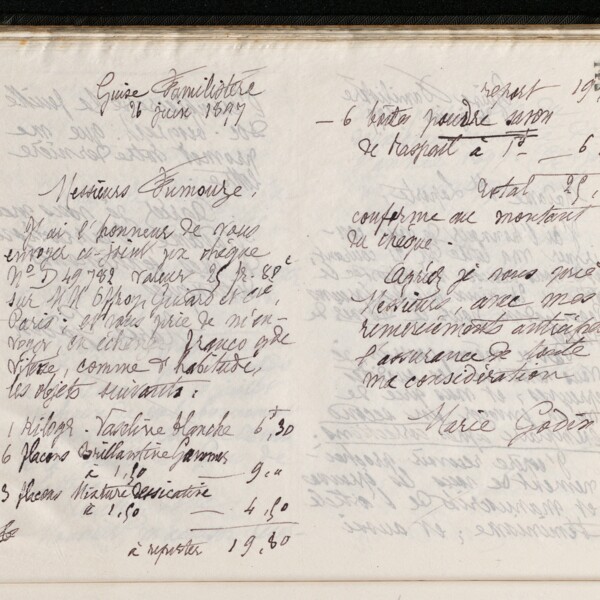 Guise Familistère
26 juin 1897
Messieurs Fumouze,
J'ai l'honneur de vous
envoyer ci-joint un chèque
N° D 49782 valeur 25 fr. 80 c
sur MM Offroy Guiard et Cie,
Paris; et vous prie de m'en-
voyer, en échange, franco gde
vitesse, comme d'habitude,
les objets suivants:
1 Kilogr. Vaseline blanche 6f,30
6 flacons Brillantine
à 1,50 — 9,"
3 flacons Mixture dessicative
à 1,50 — 4,50
à reporter 19,80
report 19
— 6 boîtes poudre
de à 1f — 6
Total 25,
conforme au montant
du chèque.
Agréez je vous prie
Messieurs, avec mes
remerciements anticipés
l'assurance de toute
ma considération
Marie Godin